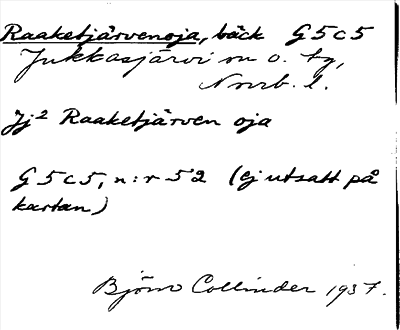 Raaketjärvenoja, bäck G5c5
Jukkasjärvi sn o. tg,
Nrrb. l.
Jj² Raaketjärven oja
G5c5, n:r 52 (ej utsatt på
kartan)
Björn Collinder 1937.